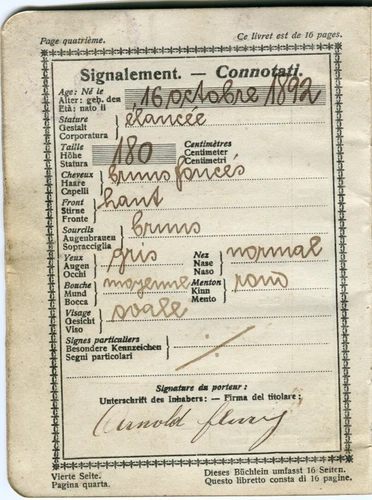 Page quatrième. Ce livret est de 16 pages.
Signalement. — Connotati.
Age: Né le
Alter: geb. den 16 octobre 1892
Età: nato il
Stature
Gestalt élancée
Corporatura
Taille Centimètres
Höhe 180 Centimeter
Statura Centimetri
Cheveux
Haare bruns foncés
Capelli
Front
Stirne haut
Fronte
Sourcils
Augenbrauen bruns
Sopracciglia
Yeux Nez
Augen gris Nase normal
Occhi Naso
Bouche Menton
Mund moyenne Kinn rond
Bocca Mento
Visage
Gesicht ovale
Viso
Signes particuliers
Besondere Kennzeichen
Segni particolari
Signature du porteur:
Unterschrift des Inhabers: — Firma del titolare:
Arnold
Vierte Seite. Dieses Büchlein umfasst 16 Seiten.
Pagina quarta. Questo libretto consta di 16 pagine.